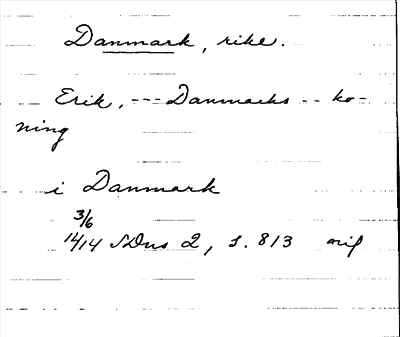 Danmark, rike.
Erik, --- Danmarks -- ko-
ning
i Danmark
3/6
1414 SDns 2, s. 813 orig